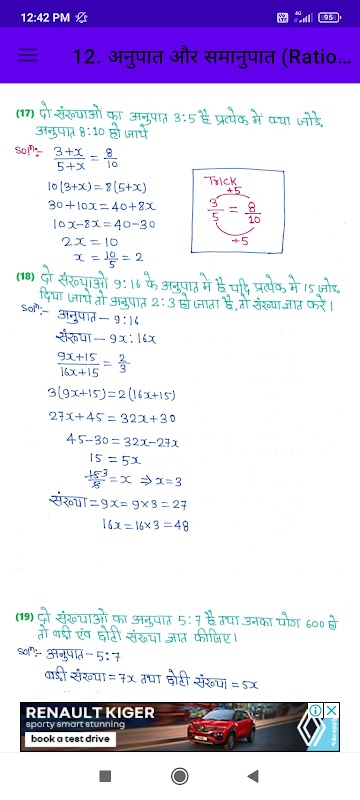 12:42 PM
4G
95
12. अनुपात और समानुपात (Ratio...
(17) दो संख्याओं का अनुपात 3:5 है प्रत्येक में क्या जोड़े
अनुपात 8:10 हो जाये
Solⁿ:- (3+x)/(5+x) = 8/10
10(3+x) = 8(5+x)
30+10x = 40+8x
10x-8x = 40-30
2x = 10
x = 10/5 = 2
Trick
+5
3/5 = 8/10
+5
(18) दो संख्याओं 9:16 के अनुपात में है यदि प्रत्येक में 15 जोड़
दिया जाये तो अनुपात 2:3 हो जाता है, तो संख्या ज्ञात करें।
Solⁿ:- अनुपात - 9:16
संख्या - 9x : 16x
(9x+15)/(16x+15) = 2/3
3(9x+15) = 2(16x+15)
27x+45 = 32x+30
45-30 = 32x-27x
15 = 5x
15 3/5 = x ⇒ x=3
संख्या = 9x = 9×3 = 27
16x = 16×3 = 48
(19) दो संख्याओं का अनुपात 5:7 है तथा उनका योग 600 हो
तो बड़ी एंव छोटी संख्या ज्ञात कीजिए।
Solⁿ:- अनुपात - 5:7
बड़ी संख्या = 7x तथा छोटी संख्या = 5x
RENAULT KIGER
sporty smart stunning
book a test drive